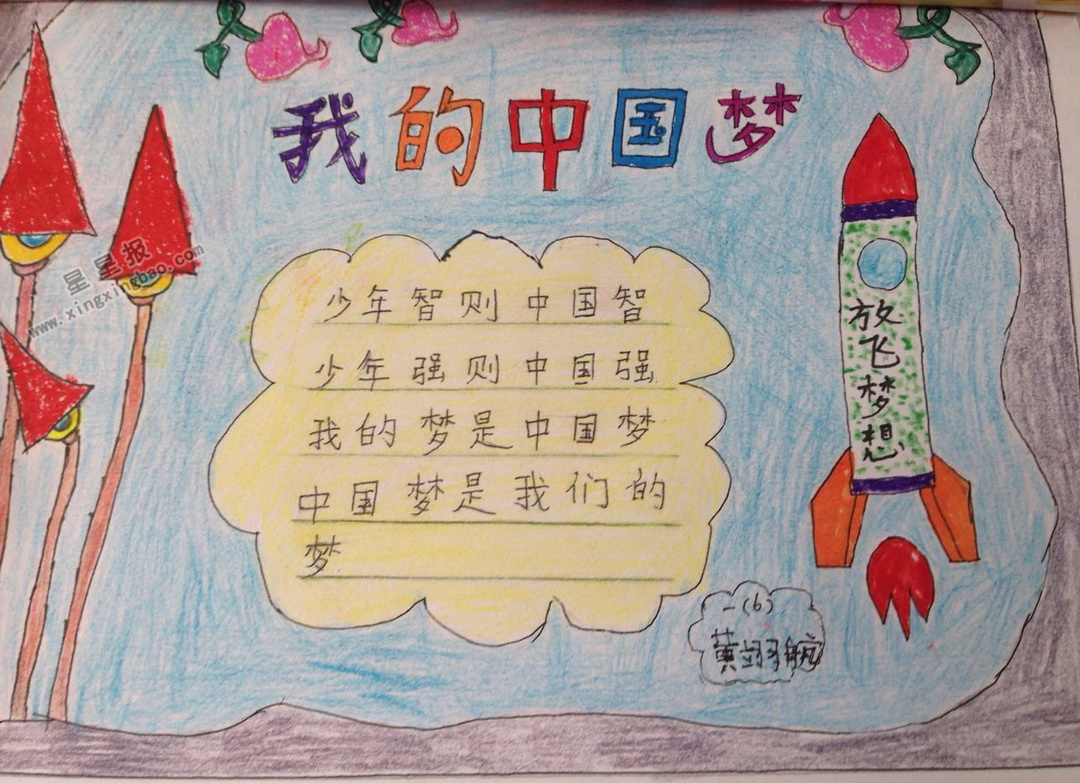 我的中国梦
星星报
www.xingxingbao.com
少年智则中国智
少年强则中国强
我的梦是中国梦
中国梦是我们的
梦
放飞梦想
一(6)
黄翊航